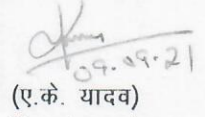 09.09.21
(ए.के. यादव)